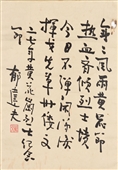 年二風雨黃花節
熱血齊傾烈士墳
今日不彈閒涕淚
揮戈先草倭文
二七年黃花崗烈士紀念
節
郁達夫